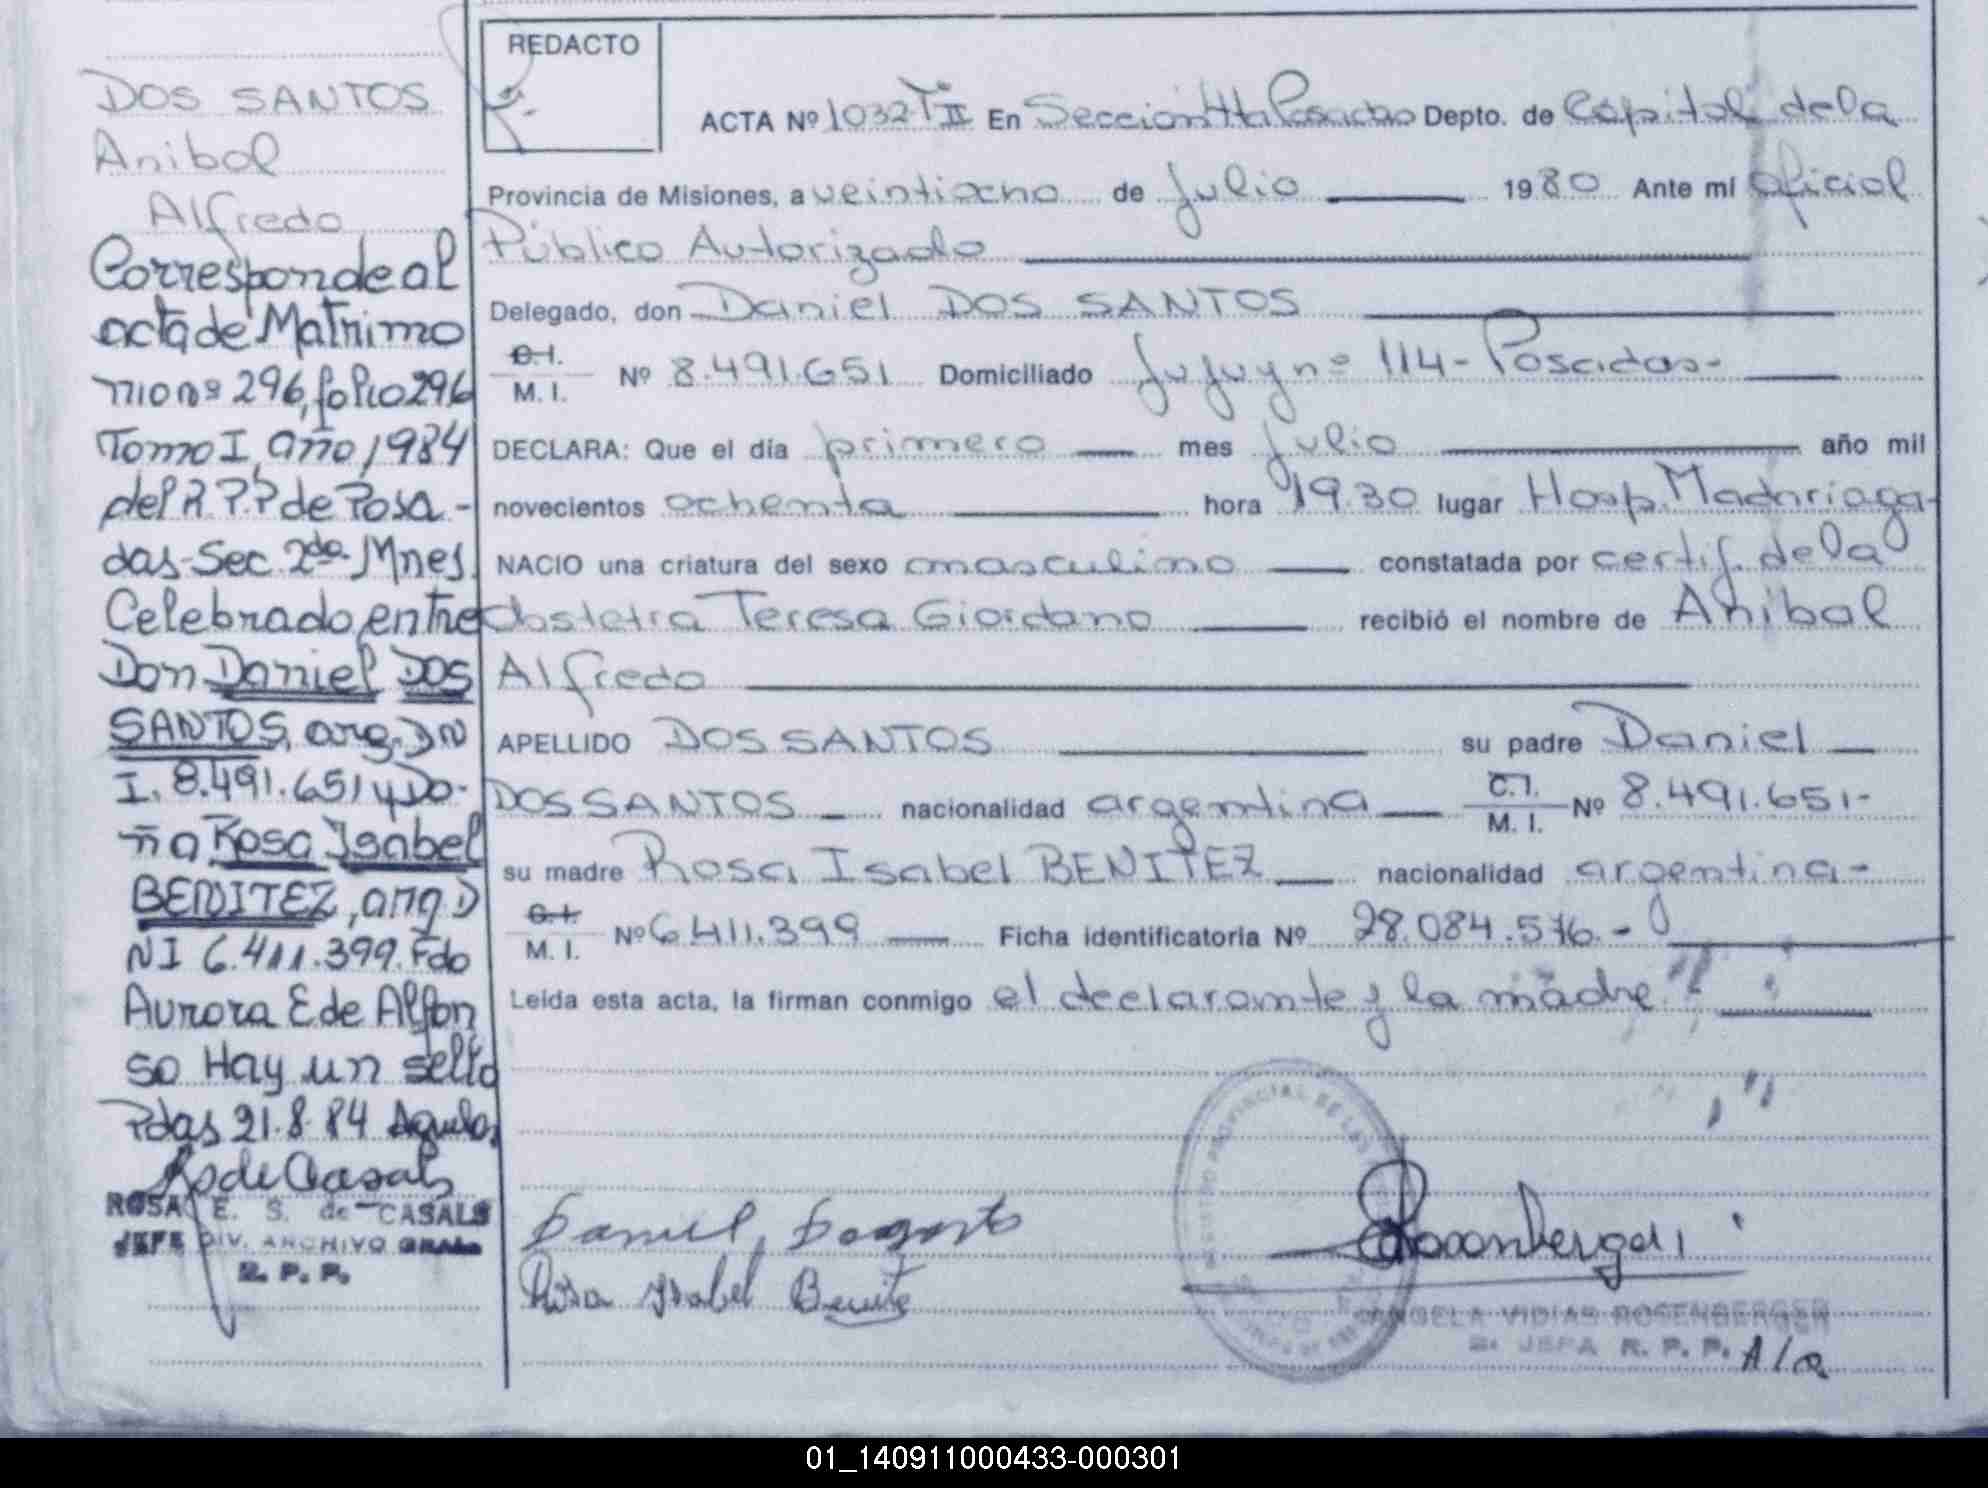 DOS SANTOS
Anibal
Alfredo
Corresponde al
acta de Matrimo
nio nº 296, folio 296
Tomo I, año 1984
del R.P.P de Posa-
das-Sec. 2da. Mnes.
Celebrado entre
Don Daniel DOS
SANTOS, arg. DN
I. 8.491.651 y Do-
ña Rosa Isabel
BENITEZ, arg D
NI 6.411.399. Fdo
Aurora E de Alfon
so Hay un sello
Pdas 21.8.84
R S de Casals
ROSA E. S. de CASALS
JEFE DIV. ARCHIVO GRAL.
R. P. P.
REDACTO
ACTA Nº 1032 T II En Sección 4ta Posadas Depto. de Capital de la
Provincia de Misiones, a veintiocho de Julio 1980 Ante mí oficial
Público Autorizado
Delegado, don Daniel DOS SANTOS
C.I.
M. I. Nº 8.491.651 Domiciliado Jujuy nº 114- Posadas-
DECLARA: Que el día primero mes julio año mil
novecientos ochenta hora 19.30 lugar Hosp. Madariaga-
NACIO una criatura del sexo masculino constatada por certif. de la
Obstetra Teresa Giordano recibió el nombre de Anibal
Alfredo
APELLIDO DOS SANTOS su padre Daniel
DOS SANTOS nacionalidad argentina C.I.
M. I. Nº 8.491.651-
su madre Rosa Isabel BENITEZ nacionalidad argentina-
C.I.
M. I. Nº 6.411.399 Ficha identificatoria Nº 28.084.576.-
Leída esta acta, la firman conmigo el declarante y la madre
Daniel Dosantos
Rosa Isabel Benite
VIDIAS ROSENBERGER
JEFA R. P. P.
01_140911000433-000301